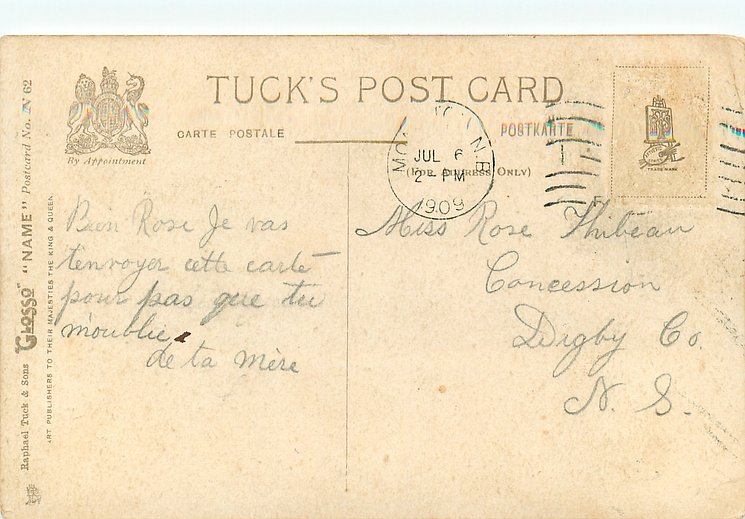 TUCK'S POST CARD
CARTE POSTALE
POSTKARTE
(FOR ADDRESS ONLY)
By Appointment
JUL 6
2 - PM
1909
N.B
TRADE MARK
Raphael Tuck & Sons "GLOSSO" "NAME" Postcard No. N 62
ART PUBLISHERS TO THEIR MAJESTIES THE KING & QUEEN
Bien Rose Je vas
t'envoyer cette carte
pour pas que tu
m'oublie
de ta mère
Miss Rose Thibeau
Concession
Digby Co.
N. S.